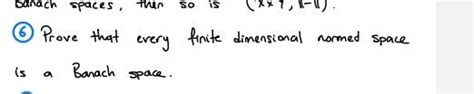 Banach spaces, then so is (X×Y, ||-||).
⑥ Prove that every finite dimensional normed space
is a Banach space.